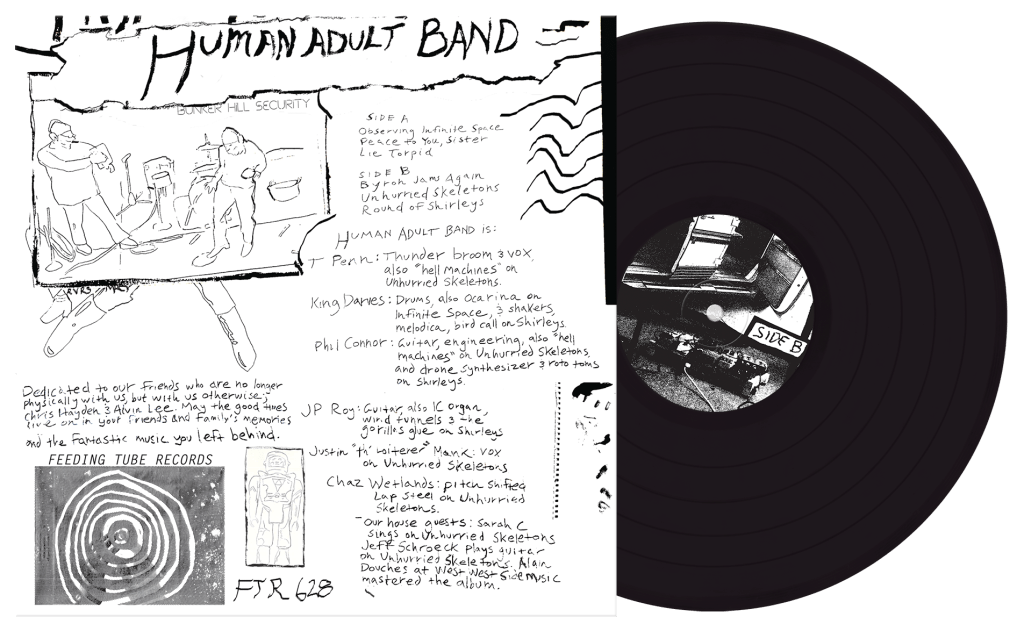 HUMAN ADULT BAND
BUNKER HILL SECURITY
SIDE A
Observing Infinite Space
Peace to You, Sister
Lie Torpid
SIDE B
Byron Jams Again
Unhurried Skeletons
Round of Shirleys
HUMAN ADULT BAND is:
T Penn: Thunder broom & vox,
also "hell machines" on
Unhurried Skeletons.
King Davies: Drums, also Ocarina on
Infinite Space, & shakers,
melodica, bird call on Shirleys.
Phil Connor: Guitar, engineering, also "hell
machines" on Unhurried Skeletons,
and drone synthesizer & roto toms
on Shirleys.
JP Roy: Guitar, also IC Organ,
wind tunnels & the
gorillas glue on Shirleys
Justin "th' Loiterer" Mank: vox
on Unhurried Skeletons
Chaz Wetlands: pitch shifted
Lap Steel on Unhurried
Skeletons.
- Our house guests: Sarah C
sings on Unhurried Skeletons
Jeff Schroeck plays guitar
on Unhurried Skeletons. Alain
Douches at West West Side Music
mastered the album.
Dedicated to our friends who are no longer
physically with us, but with us otherwise;
Chris Hayden & Alvin Lee. May the good times
live on in your friends and family's memories
and the fantastic music you left behind.
FEEDING TUBE RECORDS
FTR 628
SIDE B